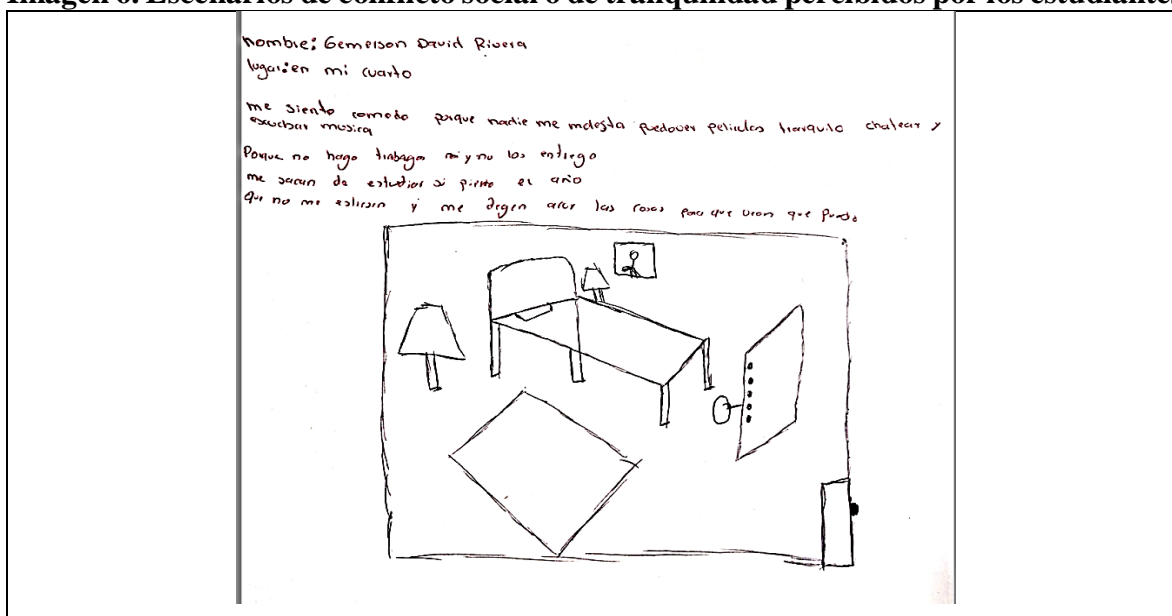 Imagen 6. Escenarios de conflicto social o de tranquilidad percibidos por los estudiantes
nombre: Gemerson David Rivera
lugar: en mi cuarto
me siento comodo porque nadie me molesta puedover peliculas tranquilo chatear y
escuchar musica
Porque no hago trabagos y no los entrego
me sacan de estudiar si pierdo el año
que no me estresen y me degen acer las cosas para que vean que puedo